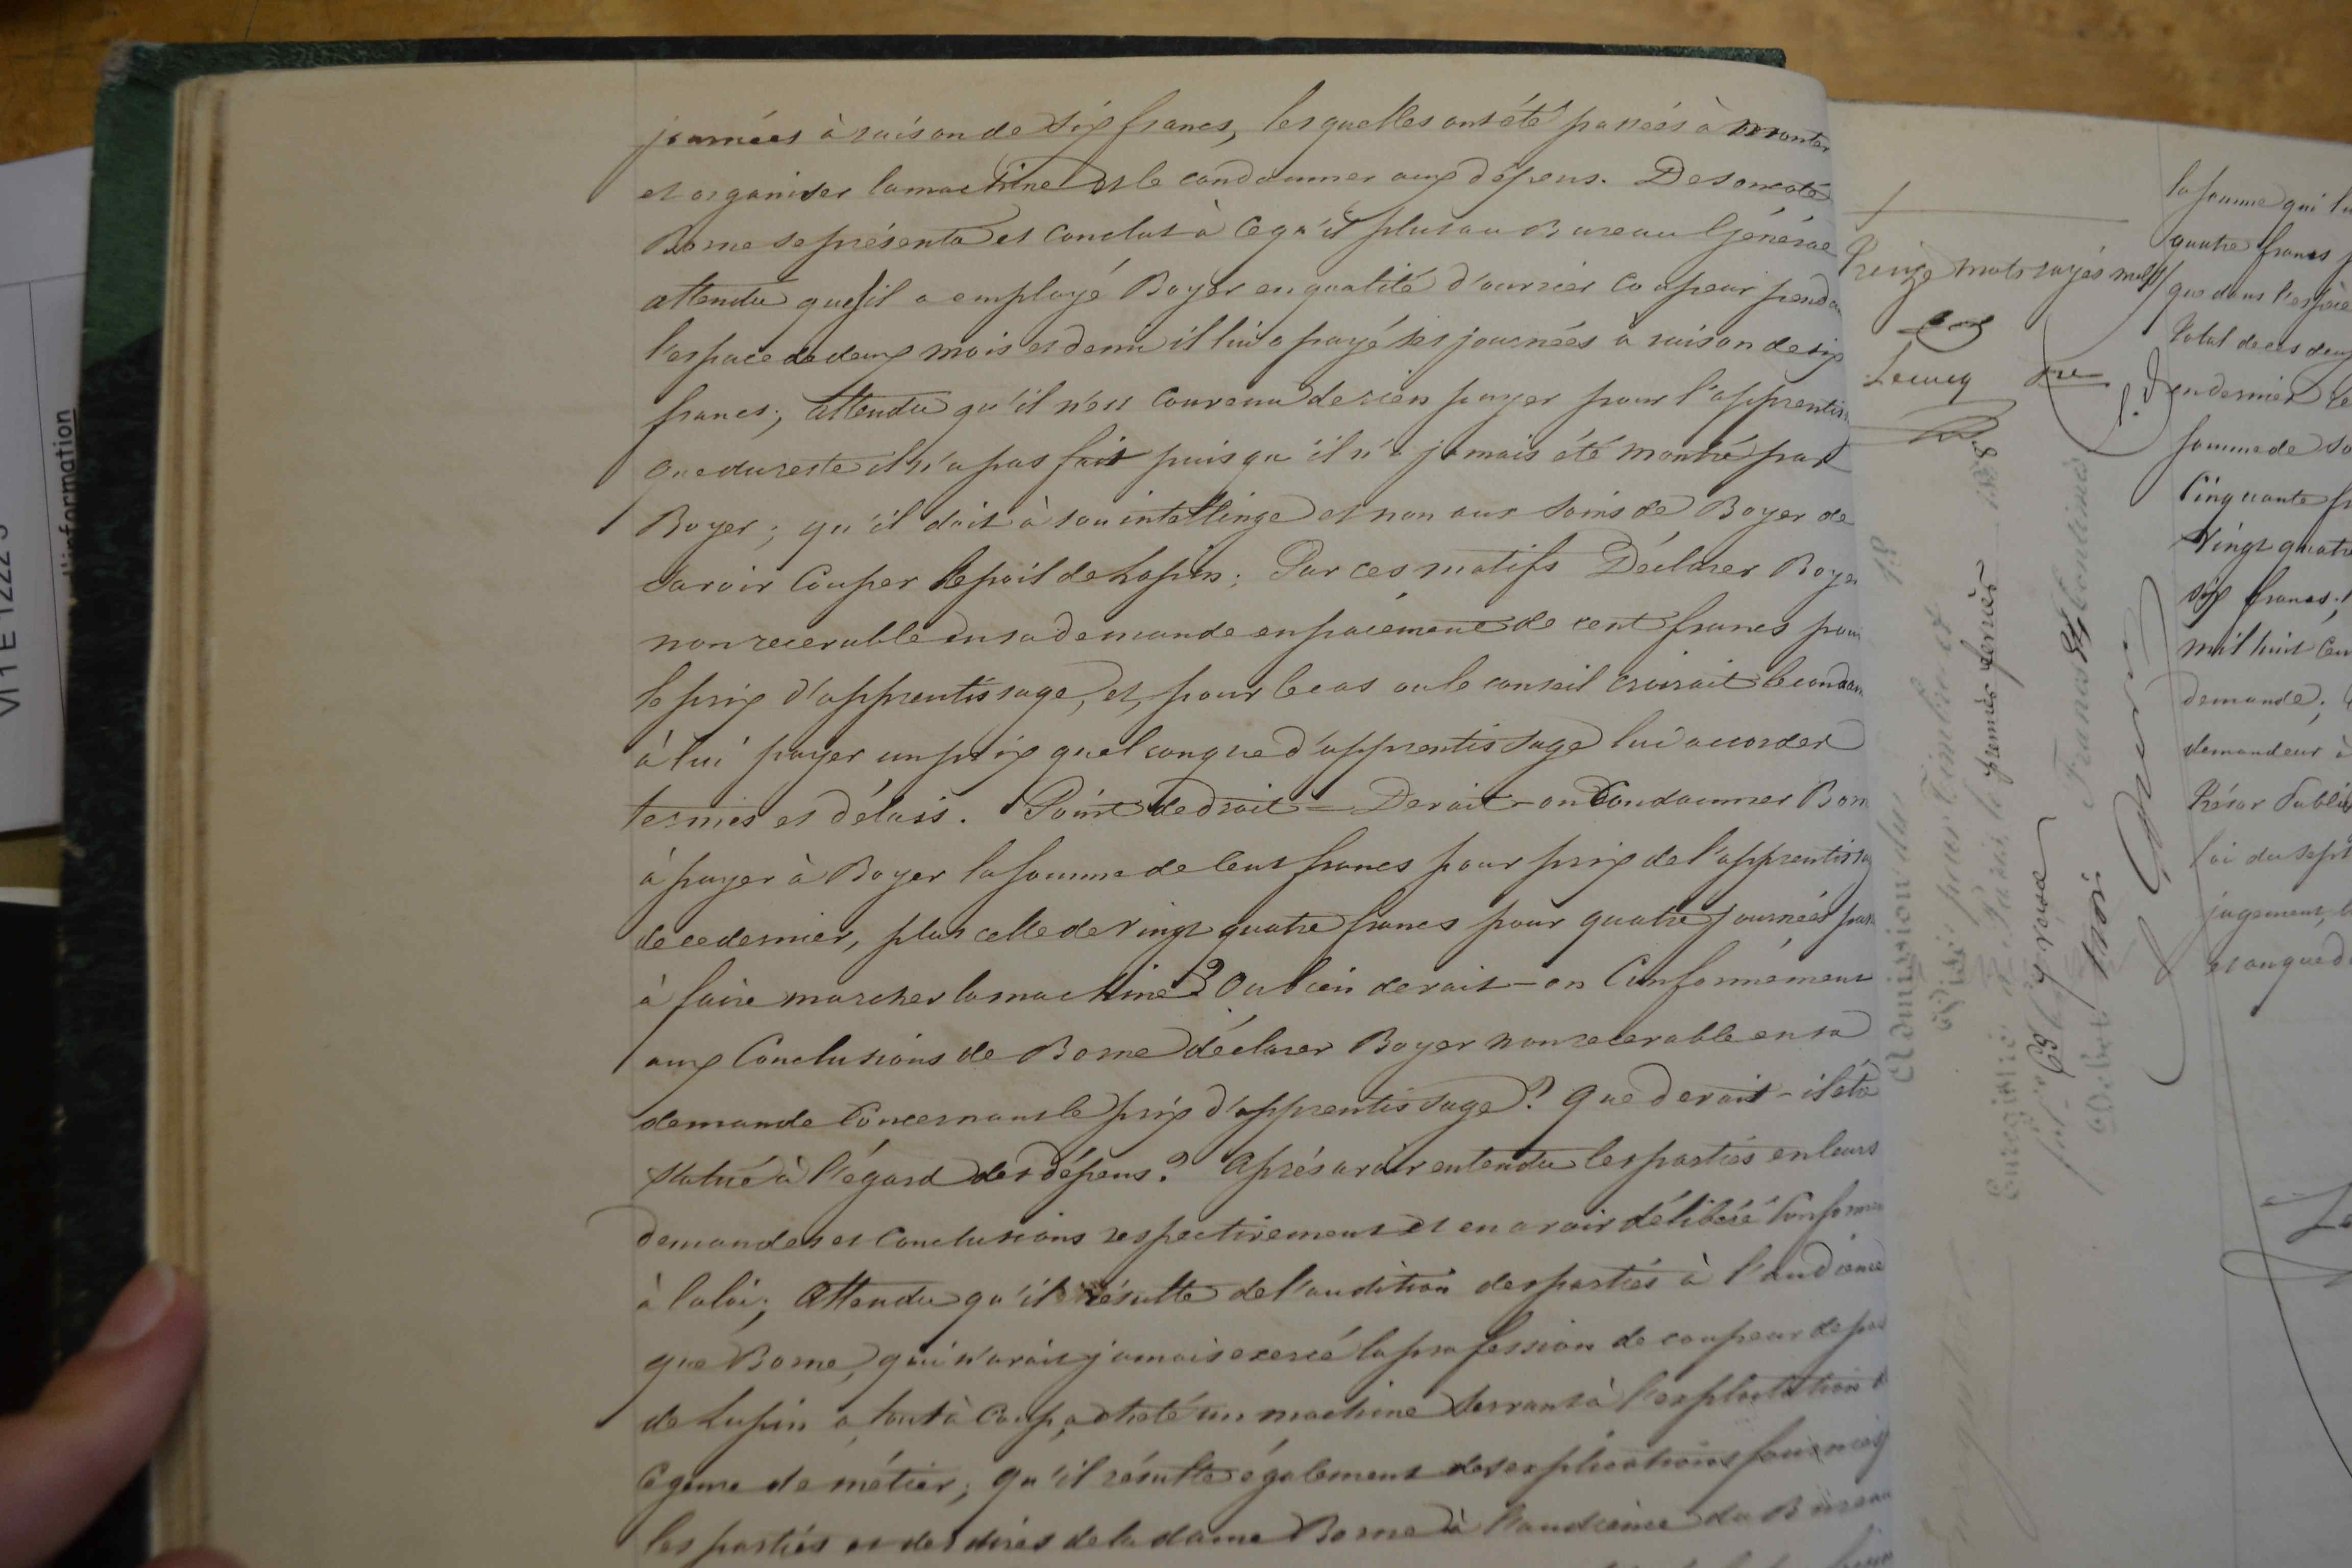 journées à raison de six francs, lesquelles ont été passées à monter
et organiser la machine et le condamner aux dépens. De son coté
Borne se présenta et conclut à ce qu'il plut au Bureau Général
attendu qu'il a employé Boyer en qualité d'ouvrier coupeur penda
l'espace de deux mois et demi il lui a payé ses journées à raison de six
francs; attendu qu'il n'est convenu de rien payer pour l'apprentis
que du reste il n'a pas fait puis qu'il n'a jamais été montré par
Boyer; qu'il doit à son intellinge et non aux soins de Boyer de
savoir couper le poil de Lapin; Par ces motifs Déclarer Boyer
non recevable en sa demande en paiement de cent francs pour
le prix d'apprentissage, et, pour le cas ou le conseil croirait le condam
à lui payer un prix quelconque d'apprentissage lui accorder
termes et délais. Point de droit = Devait-on condamner Born
à payer à Boyer la somme de cent francs pour prix de l'apprentissa
de ce dernier, plus celle de vingt quatre francs pour quatre journées pas
à faire marcher la machine? Ou bien devait-on Conformément
aux Conclusions de Borne déclarer Boyer non recevable en sa
demande concernant le prix d'apprentissage? Que devait-il être
statué à l'égard des dépens? Après avoir entendu les parties en leurs
demandes et conclusions respectivement et en avoir délibéré conformé
à la loi; Attendu qu'il résulte de l'audition des parties à l'audience
que Borne, qui n'avait jamais exercé la profession de coupeur de poi
de Lapin a, tout à coup, acheté un machine servant à l'exploitation d
ce genre de métier; qu'il résulte également des explications fournies
les parties et des dires de la dame Borne à l'audience du Bureau
Treize mots rayés nuls
Lecucq
la somme qui lu
quatre francs p
que dans l'espèce
total de ces deux
en dernier
somme de so
Cinquante fr
Vingt quatre
six francs;
mil huit cen
demande;
demandeur à
Trésor Public
loi du sept
jugement, l
et ou que d